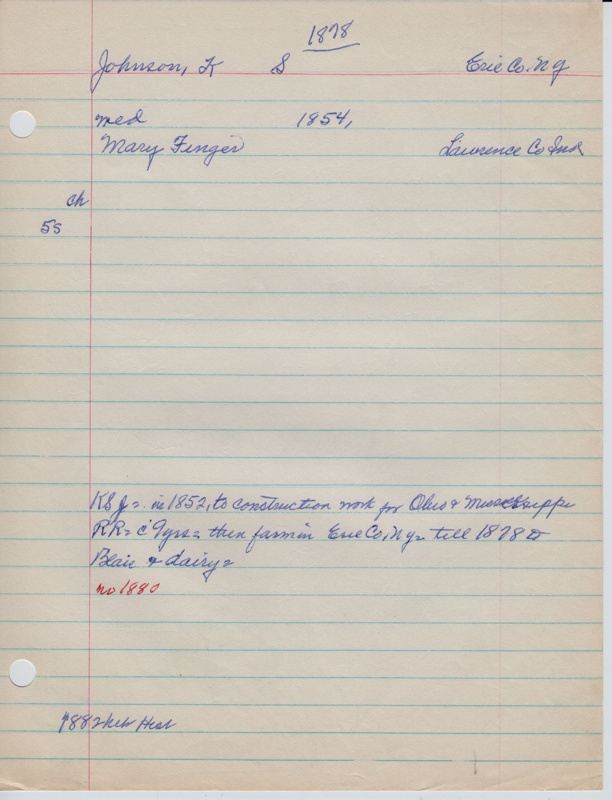 1878
Johnson, K S Erie Co. N Y
med 1854,
Mary Finger Lawrence Co Ind
ch
5s
KSJ = in 1852, to construction work for Ohio & Mississippi
RR = 9 yrs = then farm in Erie Co, N Y = till 1878
Blair & dairy =
no 1880
1882 Neb Hist